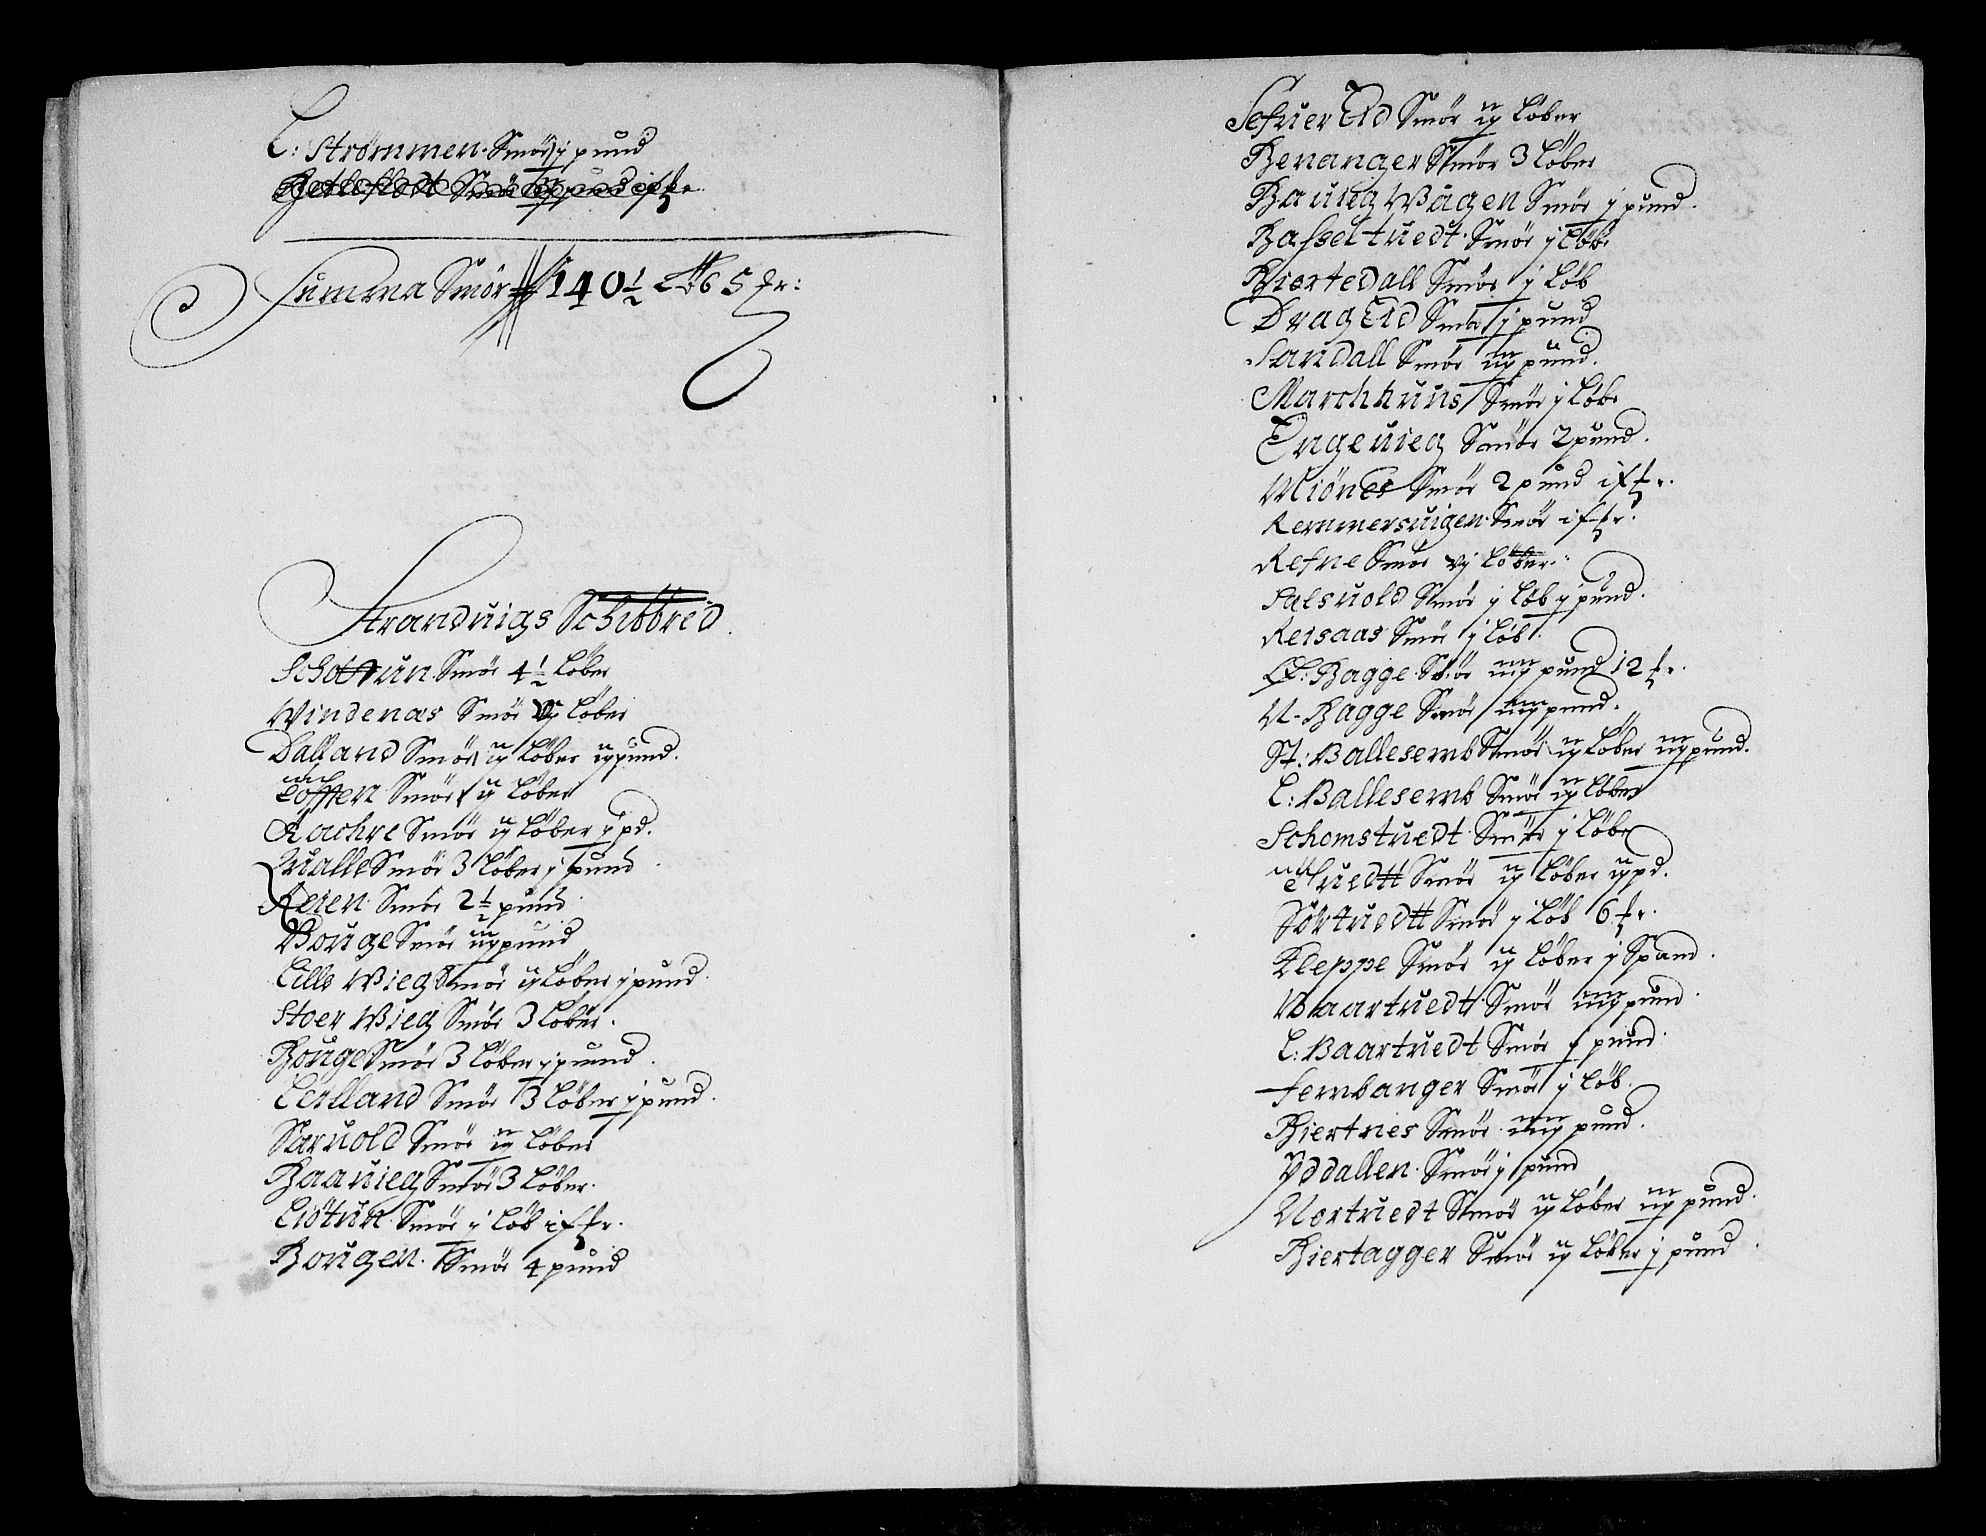 L: Strømmen. Smør j pund
Summa Smør 140½ 5 fr:
Strandvigs Schibbred
Schottun. Smør 4½ Løber
Windenas Smør vj Løber
Dalland Smør ij Løber ij pund.
Lofften Smør ij Løber
Rachre Smør ij Løber j pd.
Qualle Smør 3 Løber j pund
Reien. Smør 2½ pund
Bouge Smør iij pund
Lille Wieg Smør ij Løber j pund
Stoer Wieg Smør 3 Løber.
Houge Smør 3 Løber j pund.
Leilland Smør 3 Løber j pund.
Staruold Smør ij Løber
Haauieg Smør 3 Løber.
Liötun. Smør j Løb
Hougen. Smør 4 pund
Sefuer Eid Smør ij Løber
Henanger Smør 3 Løber
Hauieg Wågen Smør j pund.
Hasseltuedt. Smør j Løb
Hiortedall Smør j Løb
Drag Eid Smør j pund
Sandall Smør iij pund.
Marchhuus Smør j Løb
Engeuieg Smør 2 pund.
Miönes Smør 2 pund
Remmersuigen. Smør
Refne Smør vj Løber.
Salsuold Smør j Løb j pund.
Reisaas Smør j Løb.
Øf: Bagge. Smør iiij pund 12 fr.
N. Bagge Smør iiij pund.
St: Ballesemb Smør ij Løber iij pund.
L: Ballesemb Smør ij Løber
Schomstuedt. Smør j Løb
Tuedtt Smør ij Løber ij pd.
Sörtuedtt Smør j Løb 6 fr.
Kleppe Smør ij Løber j Spand.
Baartuedt. Smør iiij pund.
L: Baartuedt Smør j pund.
Fembanger Smør j Løb.
Hiertnes Smør iiij pund.
Yddallen. Smør j pund
Nortuedt Smør ij Løber iij pund.
Hiertagger Smør ij Løber j pund.